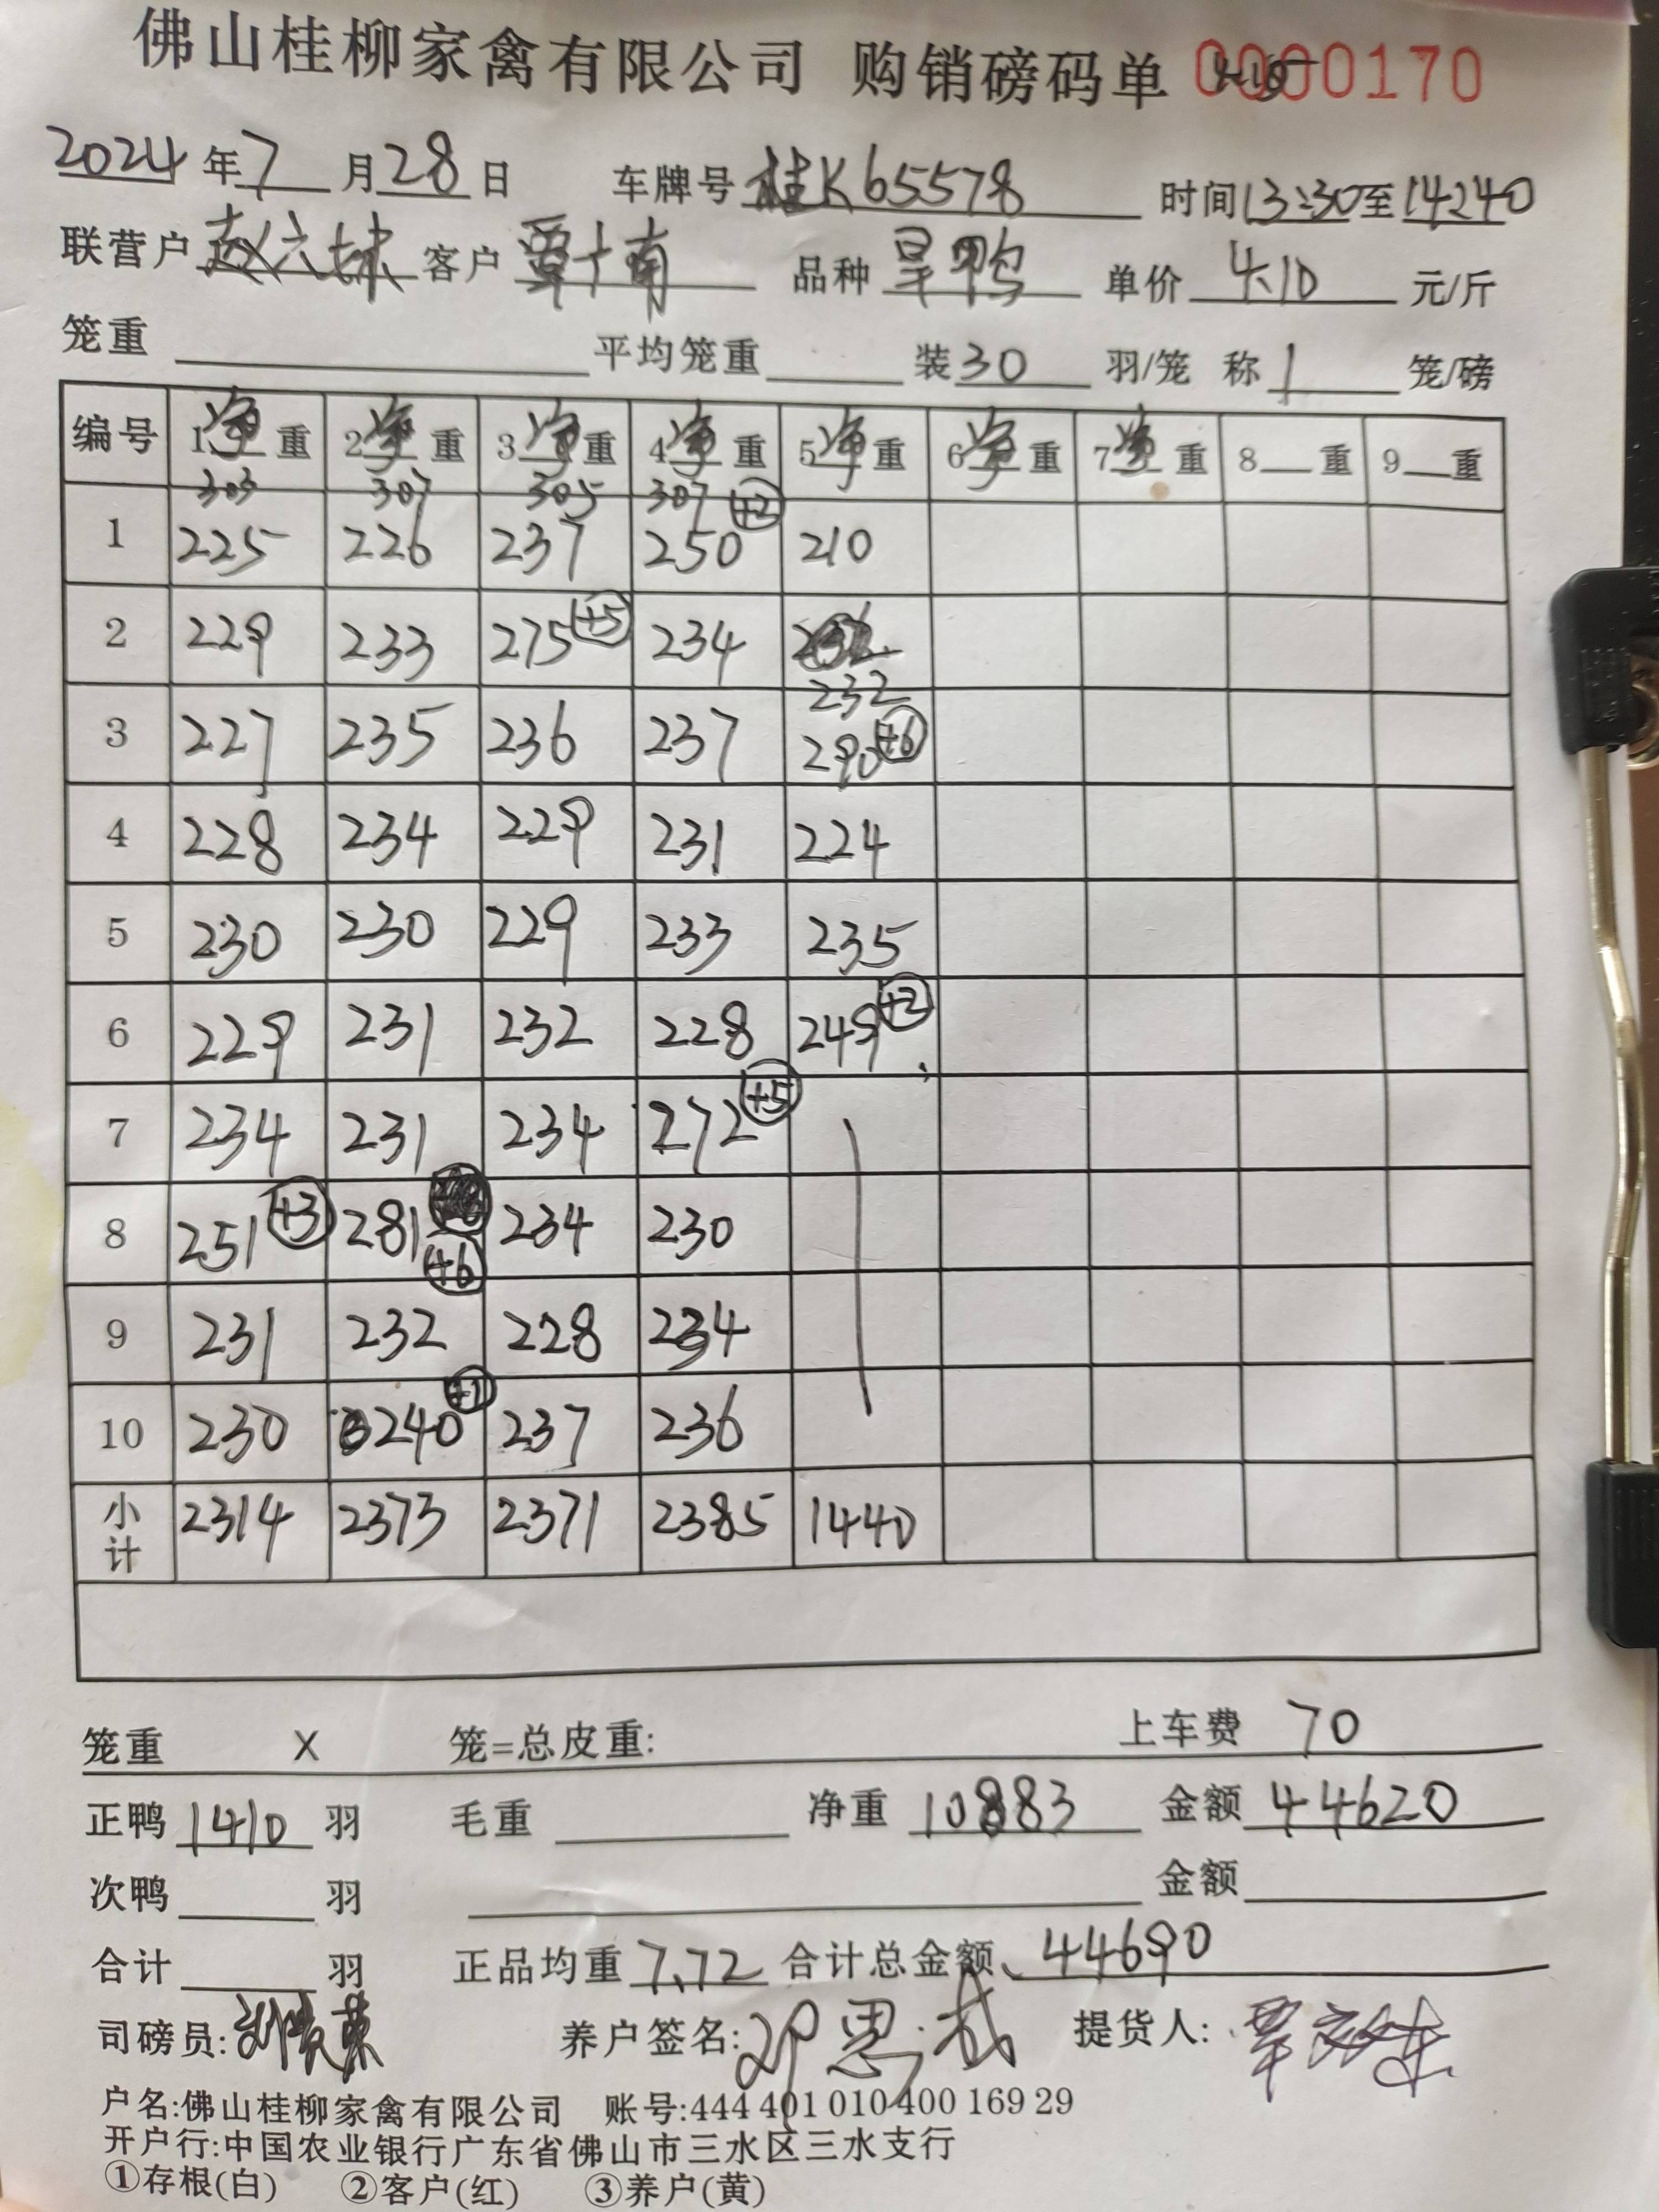 佛山桂柳家禽有限公司 购销磅码单 0000170
2024 年 7 月 28 日 车牌号 桂K65578 时间 13:30 至 14:40
联营户 赵六妹 客户 覃十南 品种 旱鸭 单价 4.10 元/斤
笼重 平均笼重 装 30 羽/笼 称 1 笼/磅
编号 1净重 2净重 3净重 4净重 5净重 6净重 7净重 8 重 9 重
303 307 305 307
1 225 226 237 250 +2 210
2 229 233 275 +5 234 232
3 227 235 236 237 290 +6
4 228 234 229 231 224
5 230 230 229 233 235
6 229 231 232 228 249 +2
7 234 231 234 272 +5
8 251 +3 281 +6 234 230
9 231 232 228 234
10 230 240 +1 237 236
小计 2314 2373 2371 2385 1440
笼重 X 笼=总皮重: 上车费 70
正鸭 1410 羽 毛重 净重 10883 金额 44620
次鸭 羽 金额
合计 羽 正品均重 7.72 合计总金额 44690
司磅员: 养户签名: 邓思 提货人: 覃
户名:佛山桂柳家禽有限公司 账号:444 401 010 400 169 29
开户行:中国农业银行广东省佛山市三水区三水支行
①存根(白) ②客户(红) ③养户(黄)